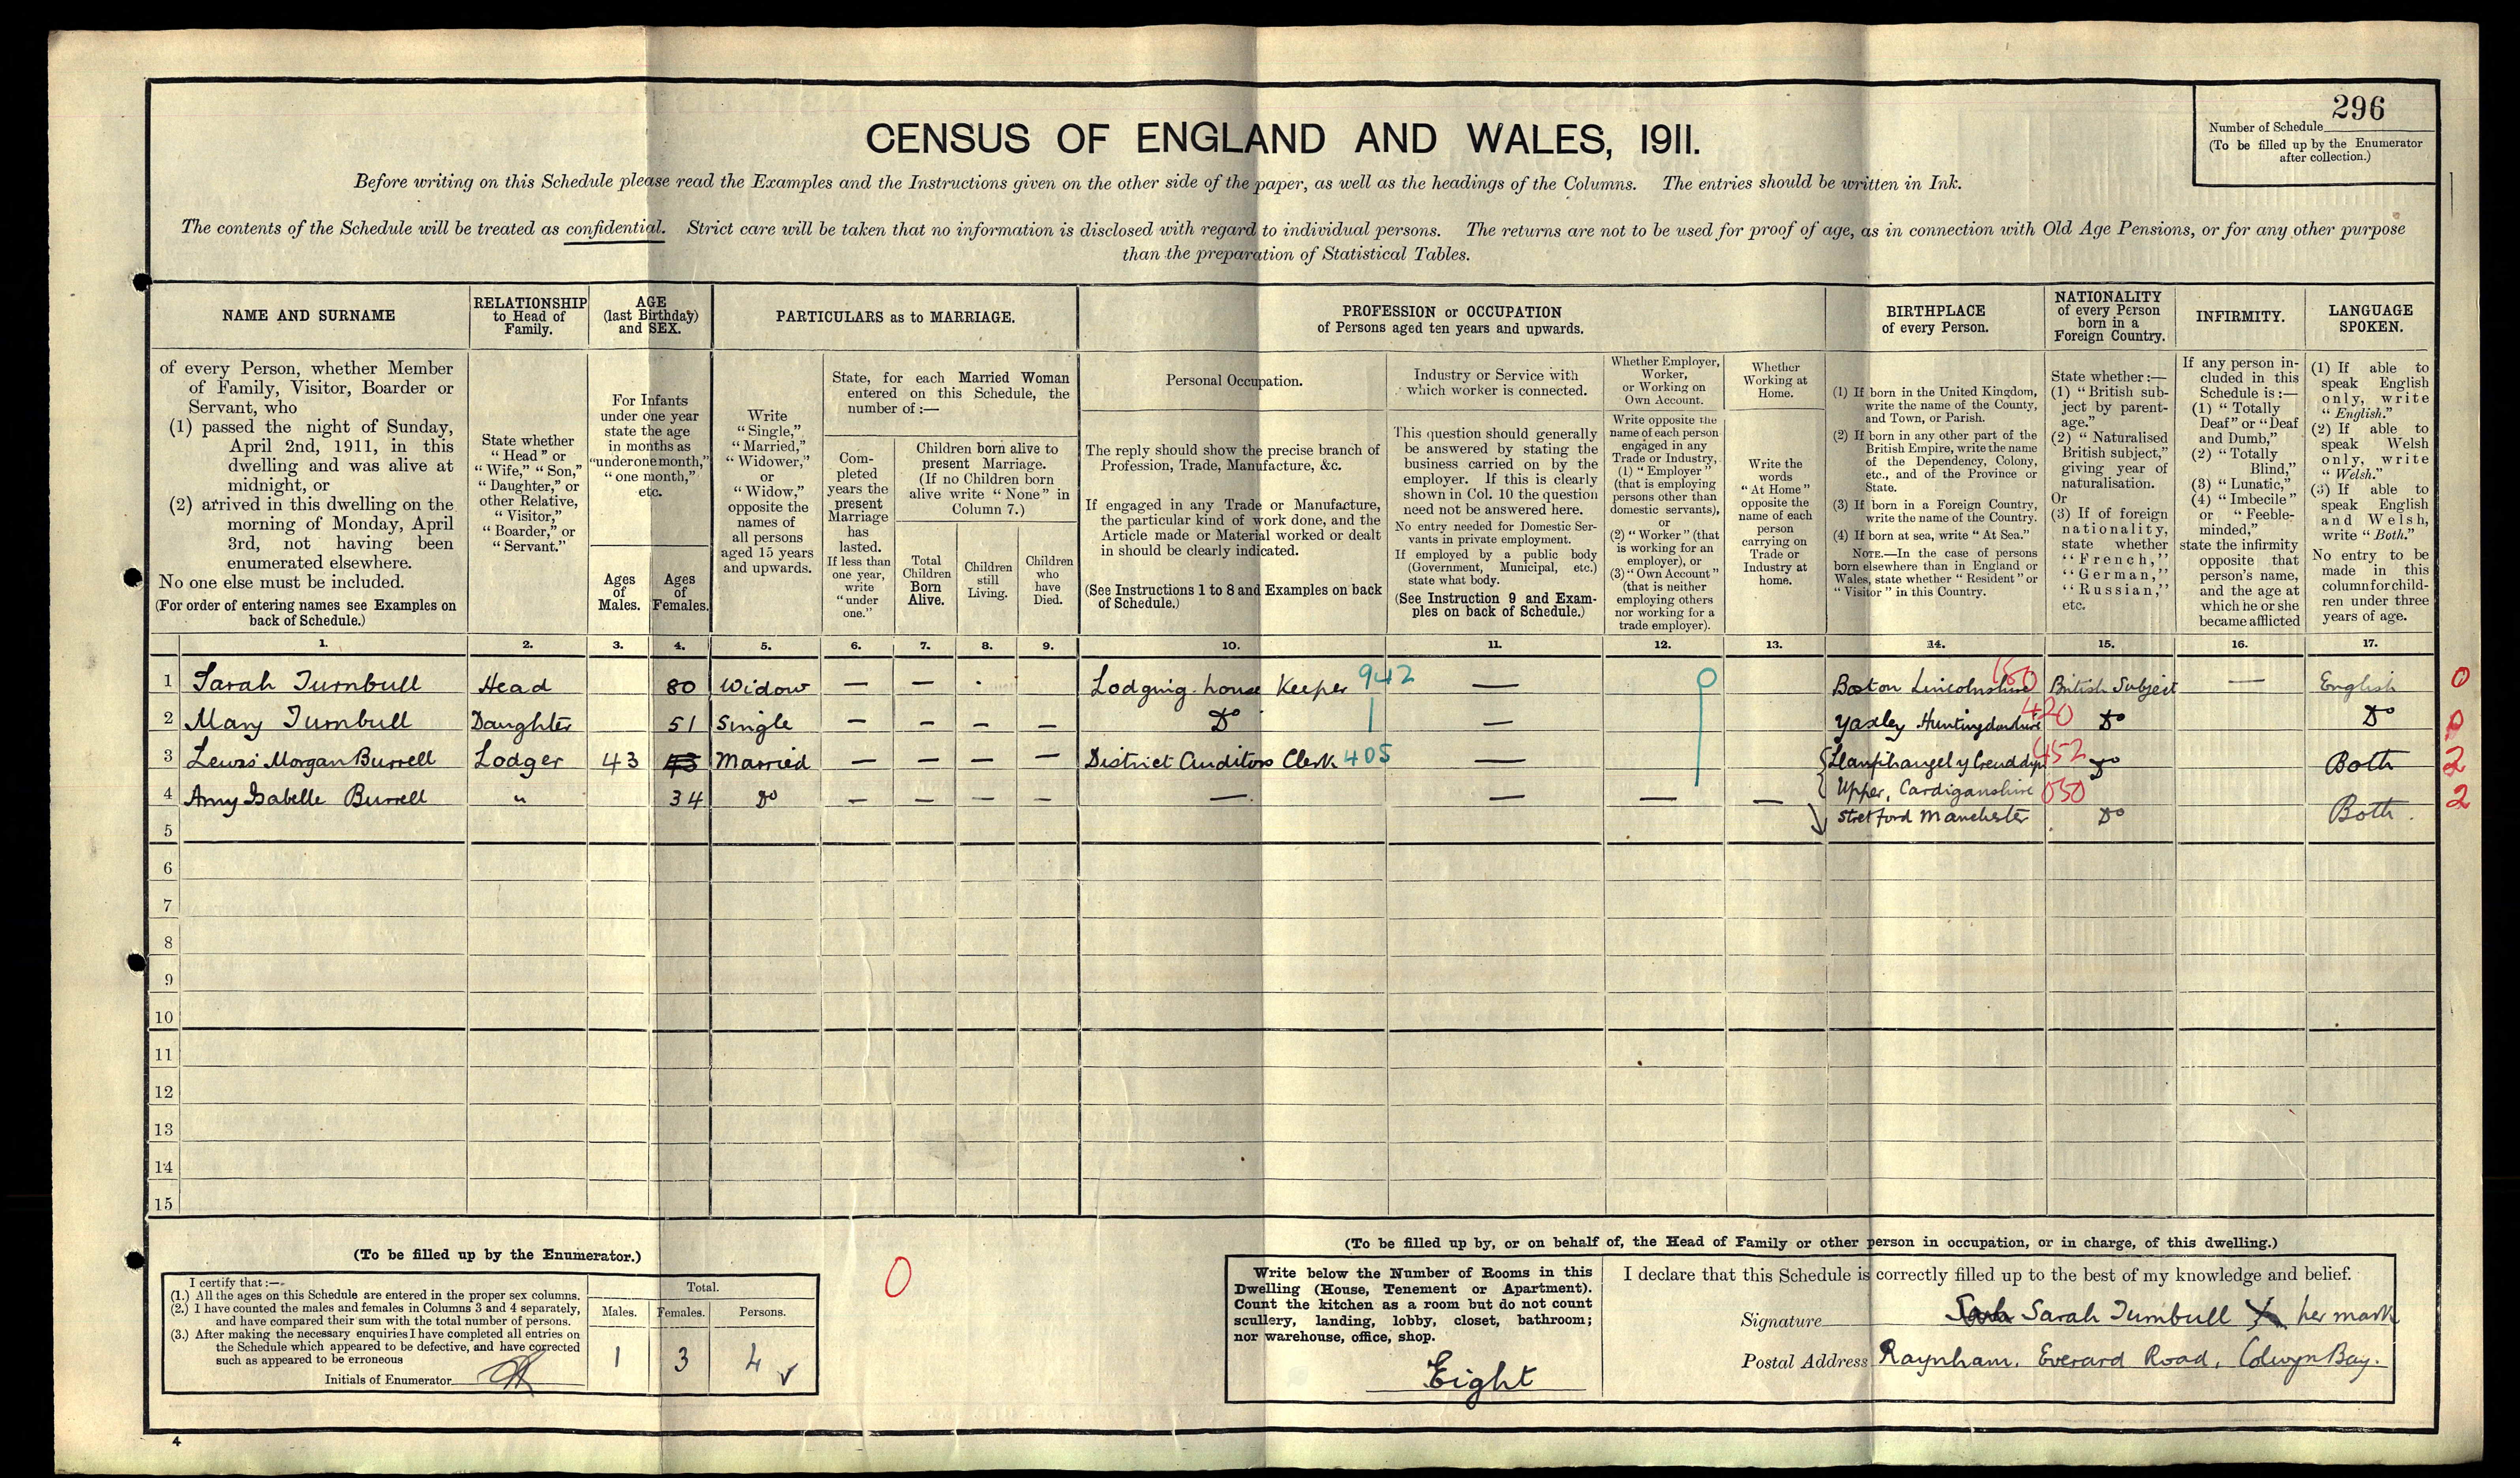 296
Number of Schedule
(To be filled up by the Enumerator
after collection.)
CENSUS OF ENGLAND AND WALES, 1911.
Before writing on this Schedule please read the Examples and the Instructions given on the other side of the paper, as well as the headings of the Columns. The entries should be written in Ink.
The contents of the Schedule will be treated as confidential. Strict care will be taken that no information is disclosed with regard to individual persons. The returns are not to be used for proof of age, as in connection with Old Age Pensions, or for any other purpose
than the preparation of Statistical Tables.
NAME AND SURNAME
of every Person, whether Member
of Family, Visitor, Boarder or
Servant, who
(1) passed the night of Sunday,
April 2nd, 1911, in this
dwelling and was alive at
midnight, or
(2) arrived in this dwelling on the
morning of Monday, April
3rd, not having been
enumerated elsewhere.
No one else must be included.
(For order of entering names see Examples on
back of Schedule.)
RELATIONSHIP
to Head of
Family.
State whether
"Head" or
"Wife," "Son,"
"Daughter," or
other Relative,
"Visitor,"
"Boarder," or
"Servant."
AGE
(last Birthday)
and SEX.
For Infants
under one year
state the age
in months as
"under one month,"
"one month,"
etc.
Ages
of
Males.
Ages
of
Females.
PARTICULARS as to MARRIAGE.
Write
"Single,"
"Married,"
"Widower,"
or
"Widow,"
opposite the
names of
all persons
aged 15 years
and upwards.
State, for each Married Woman
entered on this Schedule, the
number of :—
Com-
pleted
years the
present
Marriage
has
lasted.
If less than
one year,
write
"under
one."
Children born alive to
present Marriage.
(If no Children born
alive write "None" in
Column 7.)
Total
Children
Born
Alive.
Children
still
Living.
Children
who
have
Died.
PROFESSION or OCCUPATION
of Persons aged ten years and upwards.
Personal Occupation.
The reply should show the precise branch of
Profession, Trade, Manufacture, &c.
If engaged in any Trade or Manufacture,
the particular kind of work done, and the
Article made or Material worked or dealt
in should be clearly indicated.
(See Instructions 1 to 8 and Examples on back
of Schedule.)
Industry or Service with
which worker is connected.
This question should generally
be answered by stating the
business carried on by the
employer. If this is clearly
shown in Col. 10 the question
need not be answered here.
No entry needed for Domestic Ser-
vants in private employment.
If employed by a public body
(Government, Municipal, etc.)
state what body.
(See Instruction 9 and Exam-
ples on back of Schedule.)
Whether Employer,
Worker,
or Working on
Own Account.
Write opposite the
name of each person
engaged in any
Trade or Industry,
(1) "Employer"
(that is employing
persons other than
domestic servants),
or
(2) "Worker" (that
is working for an
employer), or
(3) "Own Account"
(that is neither
employing others
nor working for a
trade employer).
Whether
Working at
Home.
Write the
words
"At Home"
opposite the
name of each
person
carrying on
Trade or
Industry at
home.
BIRTHPLACE
of every Person.
(1) If born in the United Kingdom,
write the name of the County,
and Town, or Parish.
(2) If born in any other part of the
British Empire, write the name
of the Dependency, Colony,
etc., and of the Province or
State.
(3) If born in a Foreign Country,
write the name of the Country.
(4) If born at sea, write "At Sea."
NOTE.—In the case of persons
born elsewhere than in England or
Wales, state whether "Resident" or
"Visitor" in this Country.
NATIONALITY
of every Person
born in a
Foreign Country.
State whether :—
(1) "British sub-
ject by parent-
age."
(2) "Naturalised
British subject,"
giving year of
naturalisation.
Or
(3) If of foreign
nationality,
state whether
"French,"
"German,"
"Russian,"
etc.
INFIRMITY.
If any person in-
cluded in this
Schedule is :—
(1) "Totally
Deaf" or "Deaf
and Dumb,"
(2) "Totally
Blind,"
(3) "Lunatic,"
(4) "Imbecile"
or "Feeble-
minded,"
state the infirmity
opposite that
person's name,
and the age at
which he or she
became afflicted
LANGUAGE
SPOKEN.
(1) If able to
speak English
only, write
"English."
(2) If able to
speak Welsh
only, write
"Welsh."
(3) If able to
speak English
and Welsh,
write "Both."
No entry to be
made in this
column for child-
ren under three
years of age.
1. 2. 3. 4. 5. 6. 7. 8. 9. 10. 11. 12. 13. 14. 15. 16. 17.
1 Sarah Turnbull Head 80 Widow — — Lodging house Keeper 942 — 0 Boston Lincolnshire 150 British Subject — English 0
2 Mary Turnbull Daughter 51 Single — — — — Do — Yaxley Huntingdonshire 420 Do Do 0
3 Lewis Morgan Burrell Lodger 43 43 Married — — — — District Auditors Clerk 405 — Llanfihangel y Creuddyn 452 Do Both 2
4 Amy Isabelle Burrell " 34 Do — — — — — — — — Upper, Cardiganshire 050 2
5 Stretford Manchester Do Both.
6
7
8
9
10
11
12
13
14
15
(To be filled up by the Enumerator.)
I certify that :—
(1.) All the ages on this Schedule are entered in the proper sex columns.
(2.) I have counted the males and females in Columns 3 and 4 separately,
and have compared their sum with the total number of persons.
(3.) After making the necessary enquiries I have completed all entries on
the Schedule which appeared to be defective, and have corrected
such as appeared to be erroneous
Initials of Enumerator
Total.
Males. Females. Persons.
1 3 4
0
(To be filled up by, or on behalf of, the Head of Family or other person in occupation, or in charge, of this dwelling.)
Write below the Number of Rooms in this
Dwelling (House, Tenement or Apartment).
Count the kitchen as a room but do not count
scullery, landing, lobby, closet, bathroom;
nor warehouse, office, shop.
Eight
I declare that this Schedule is correctly filled up to the best of my knowledge and belief.
Signature Sarah Turnbull X her mark
Postal Address Raynham, Everard Road, Colwyn Bay.
4